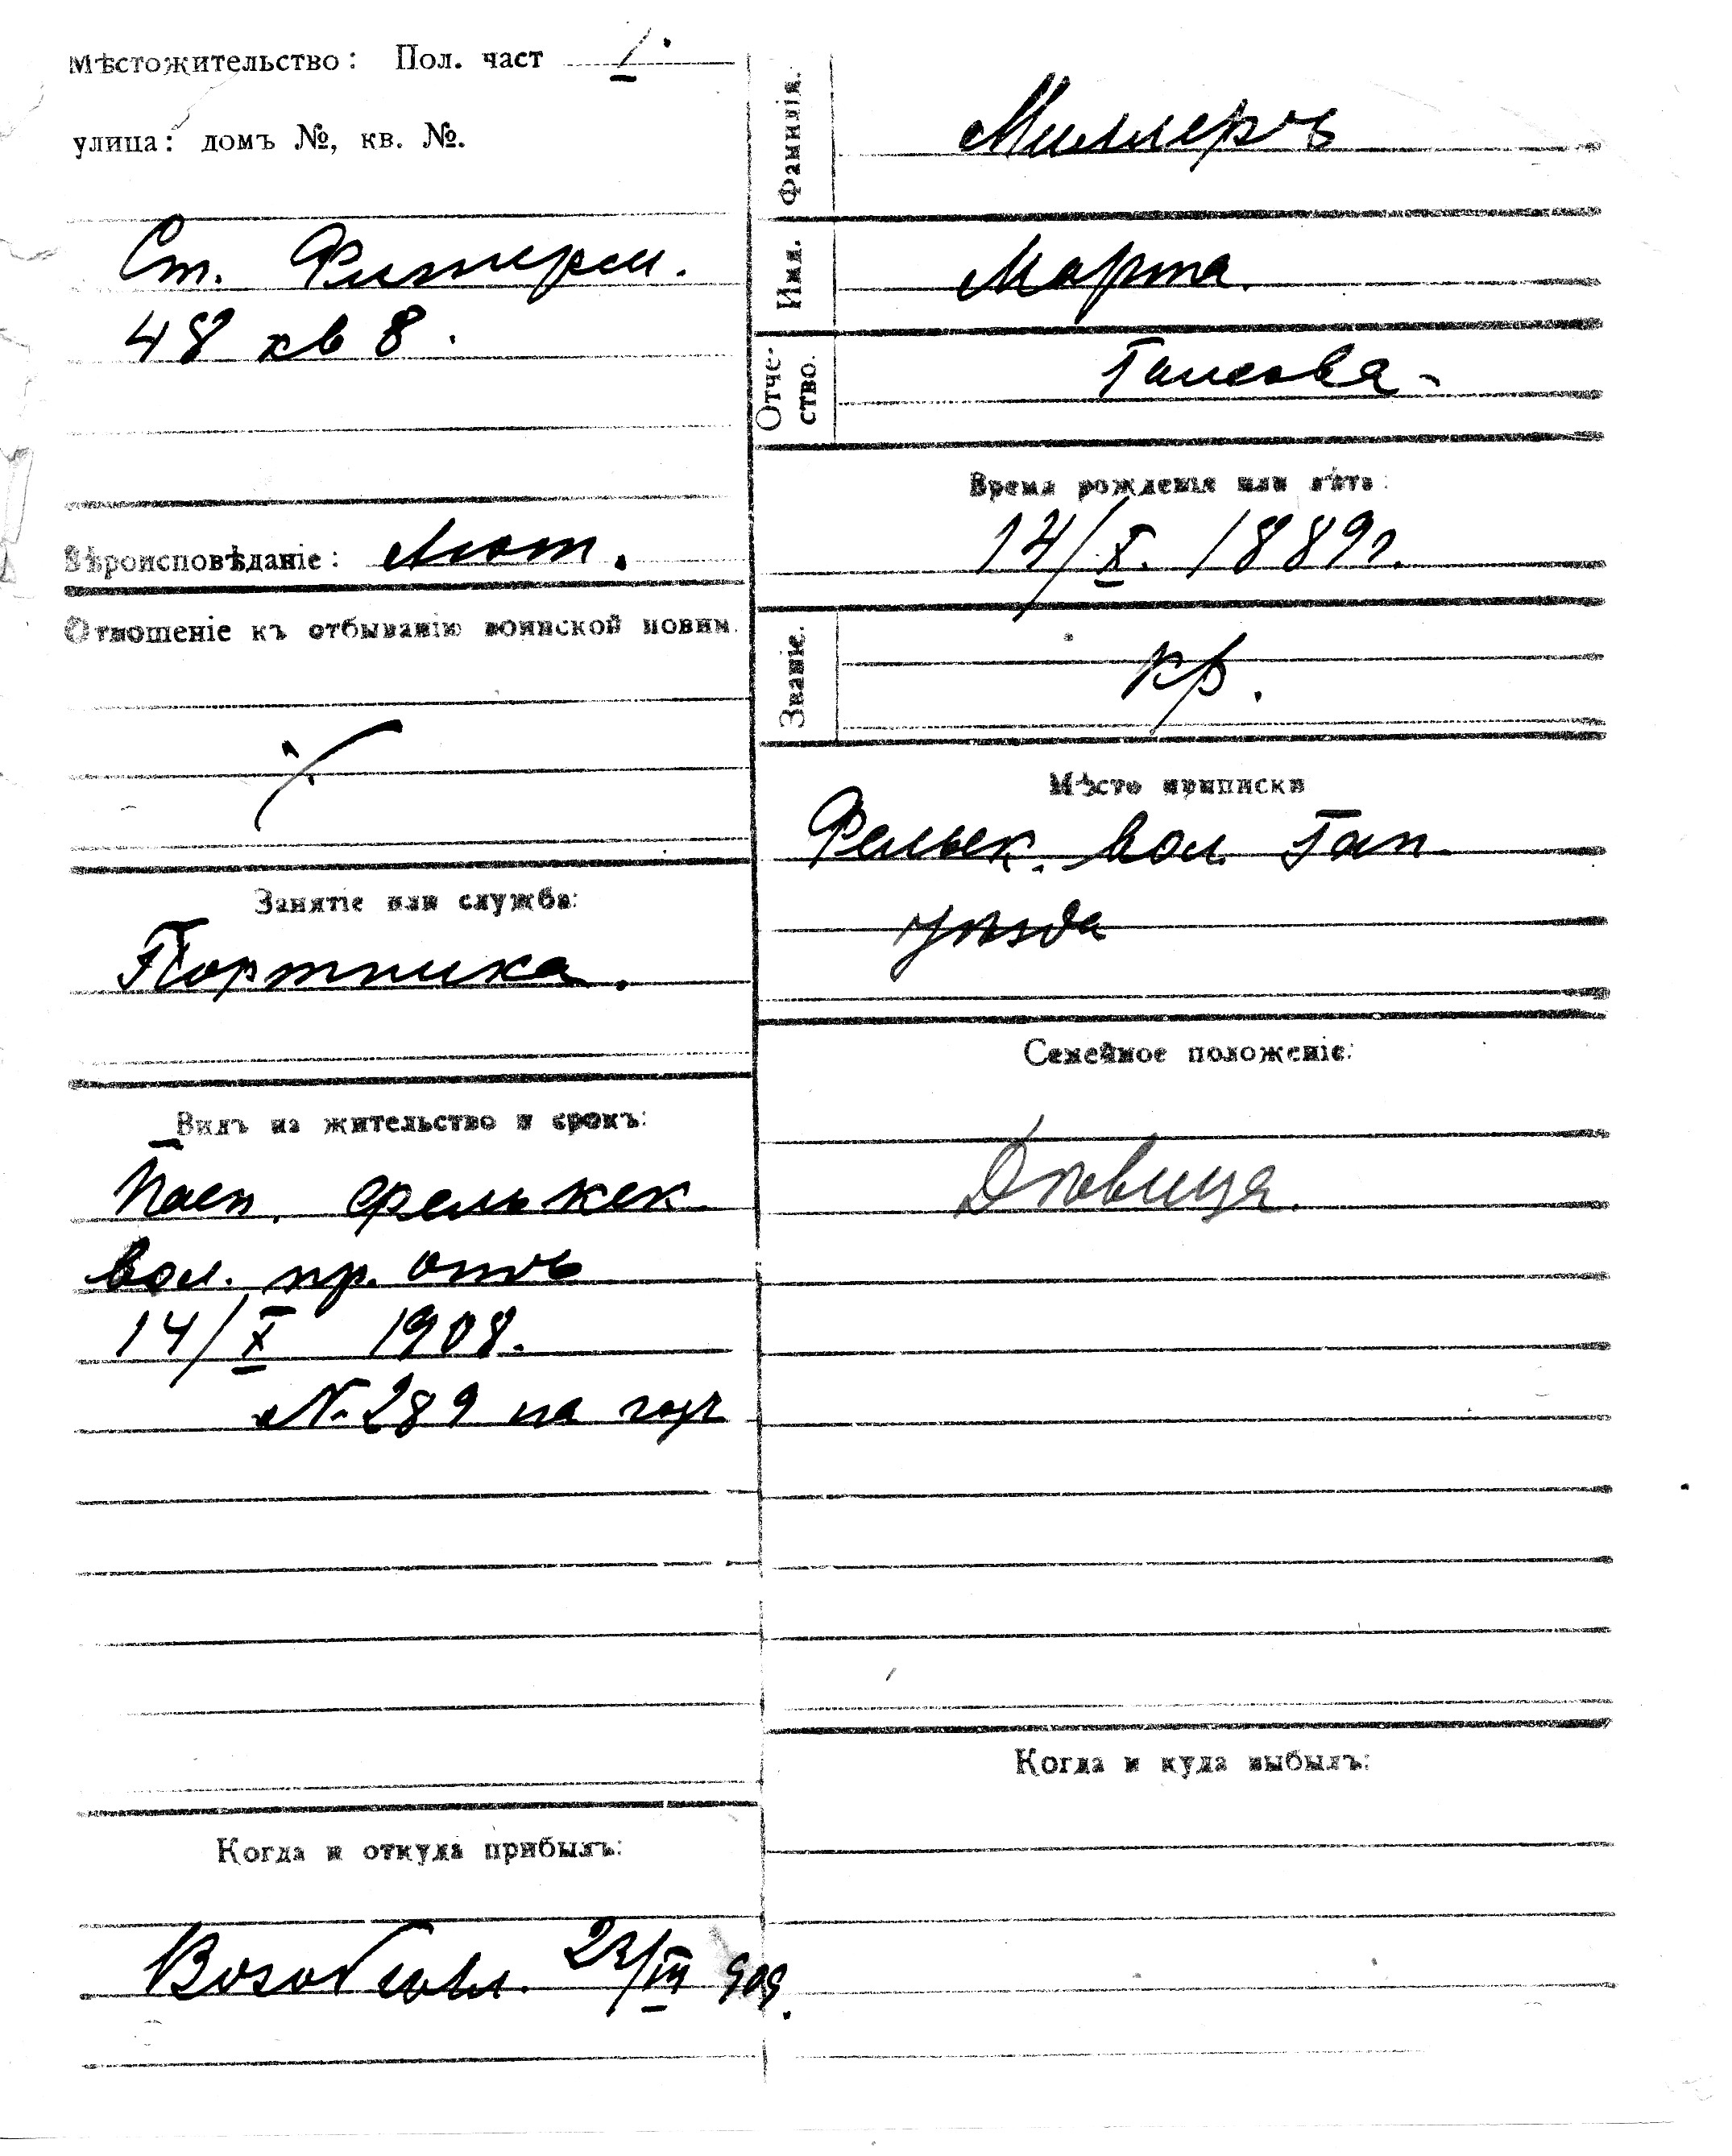 Мѣстожительство: Пол. част I.
улица: домъ №, кв. №.
Ст.
48 кв 8.
Вѣроисповѣданіе: Лют.
Отношеніе къ отбыванію воинской повин.
Занятіе или служба:
Портниха.
Видъ на жительство и срокъ:
Пасп.
вол. пр. отъ
14/X 1908.
№ 289 на годъ
Когда и откуда прибылъ:
Возобновл. 23/III 909.
Фамилія. Миллеръ
Имя. Марта.
Отче-
ство. Гансова
Время рожденія или лѣта:
14/X. 1889 г.
Званіе. кр.
Мѣсто приписки
вол. Гап.
уѣзда
Семейное положеніе:
Дѣвица.
Когда и куда выбылъ: